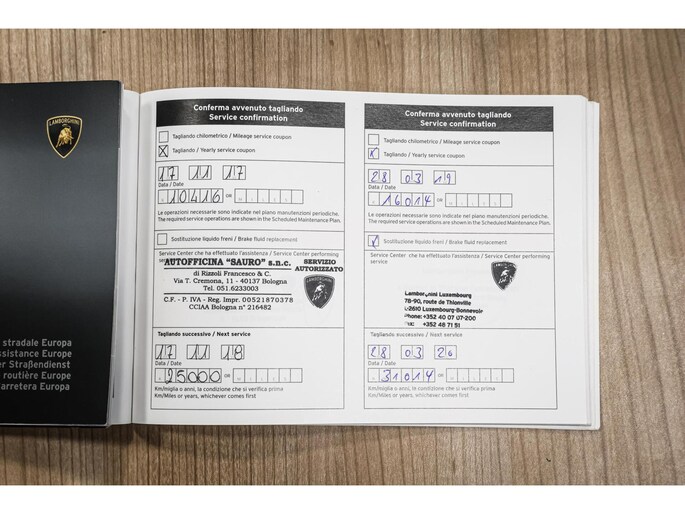 LAMBORGHINI
stradale Europa
ssistance Europe
er Straßendienst
routière Europe
arretera Europa
Conferma avvenuto tagliando
Service confirmation
Tagliando chilometrico / Mileage service coupon
X Tagliando / Yearly service coupon
17 11 17
Data / Date
10416 OR
Le operazioni necessarie sono indicate nel piano manutenzioni periodiche.
The required service operations are shown in the Scheduled Maintenance Plan.
Sostituzione liquido freni / Brake fluid replacement
Service Center che ha effettuato l'assistenza / Service Center performing
AUTOFFICINA "SAURO" s.n.c.
di Rizzoli Francesco & C.
Via T. Cremona, 11 - 40137 Bologna
Tel. 051.6233003
C.F. - P. IVA - Reg. Impr. 00521870378
CCIAA Bologna n° 216482
SERVIZIO
AUTORIZZATO
Tagliando successivo / Next service
17 11 18
Data / Date
25000 OR
Km/miglia o anni, la condizione che si verifica prima
Km/Miles or years, whichever comes first
Conferma avvenuto tagliando
Service confirmation
Tagliando chilometrico / Mileage service coupon
X Tagliando / Yearly service coupon
28 03 19
Data / Date
16014 OR
Le operazioni necessarie sono indicate nel piano manutenzioni periodiche.
The required service operations are shown in the Scheduled Maintenance Plan.
Sostituzione liquido freni / Brake fluid replacement
Service Center che ha effettuato l'assistenza / Service Center performing
service
Lamborghini Luxembourg
78-90, route de Thionville
L-2610 Luxembourg-Bonnevoie
Phone: +352 40 07 07-200
+352 48 71 51
Tagliando successivo / Next service
28 03 20
Data / Date
31014 OR
Km/miglia o anni, la condizione che si verifica prima
Km/Miles or years, whichever comes first